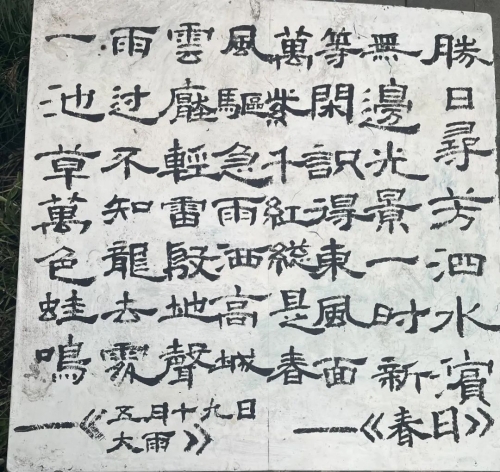 勝日尋芳泗水濱
無邊光景一时新
等閑識得東風面
萬紫千紅總是春
——《春日》
風驅急雨洒高城
雲壓輕雷殷地聲
雨过不知龍去處
一池草萬色蛙鳴
——《五月十九日
大雨》